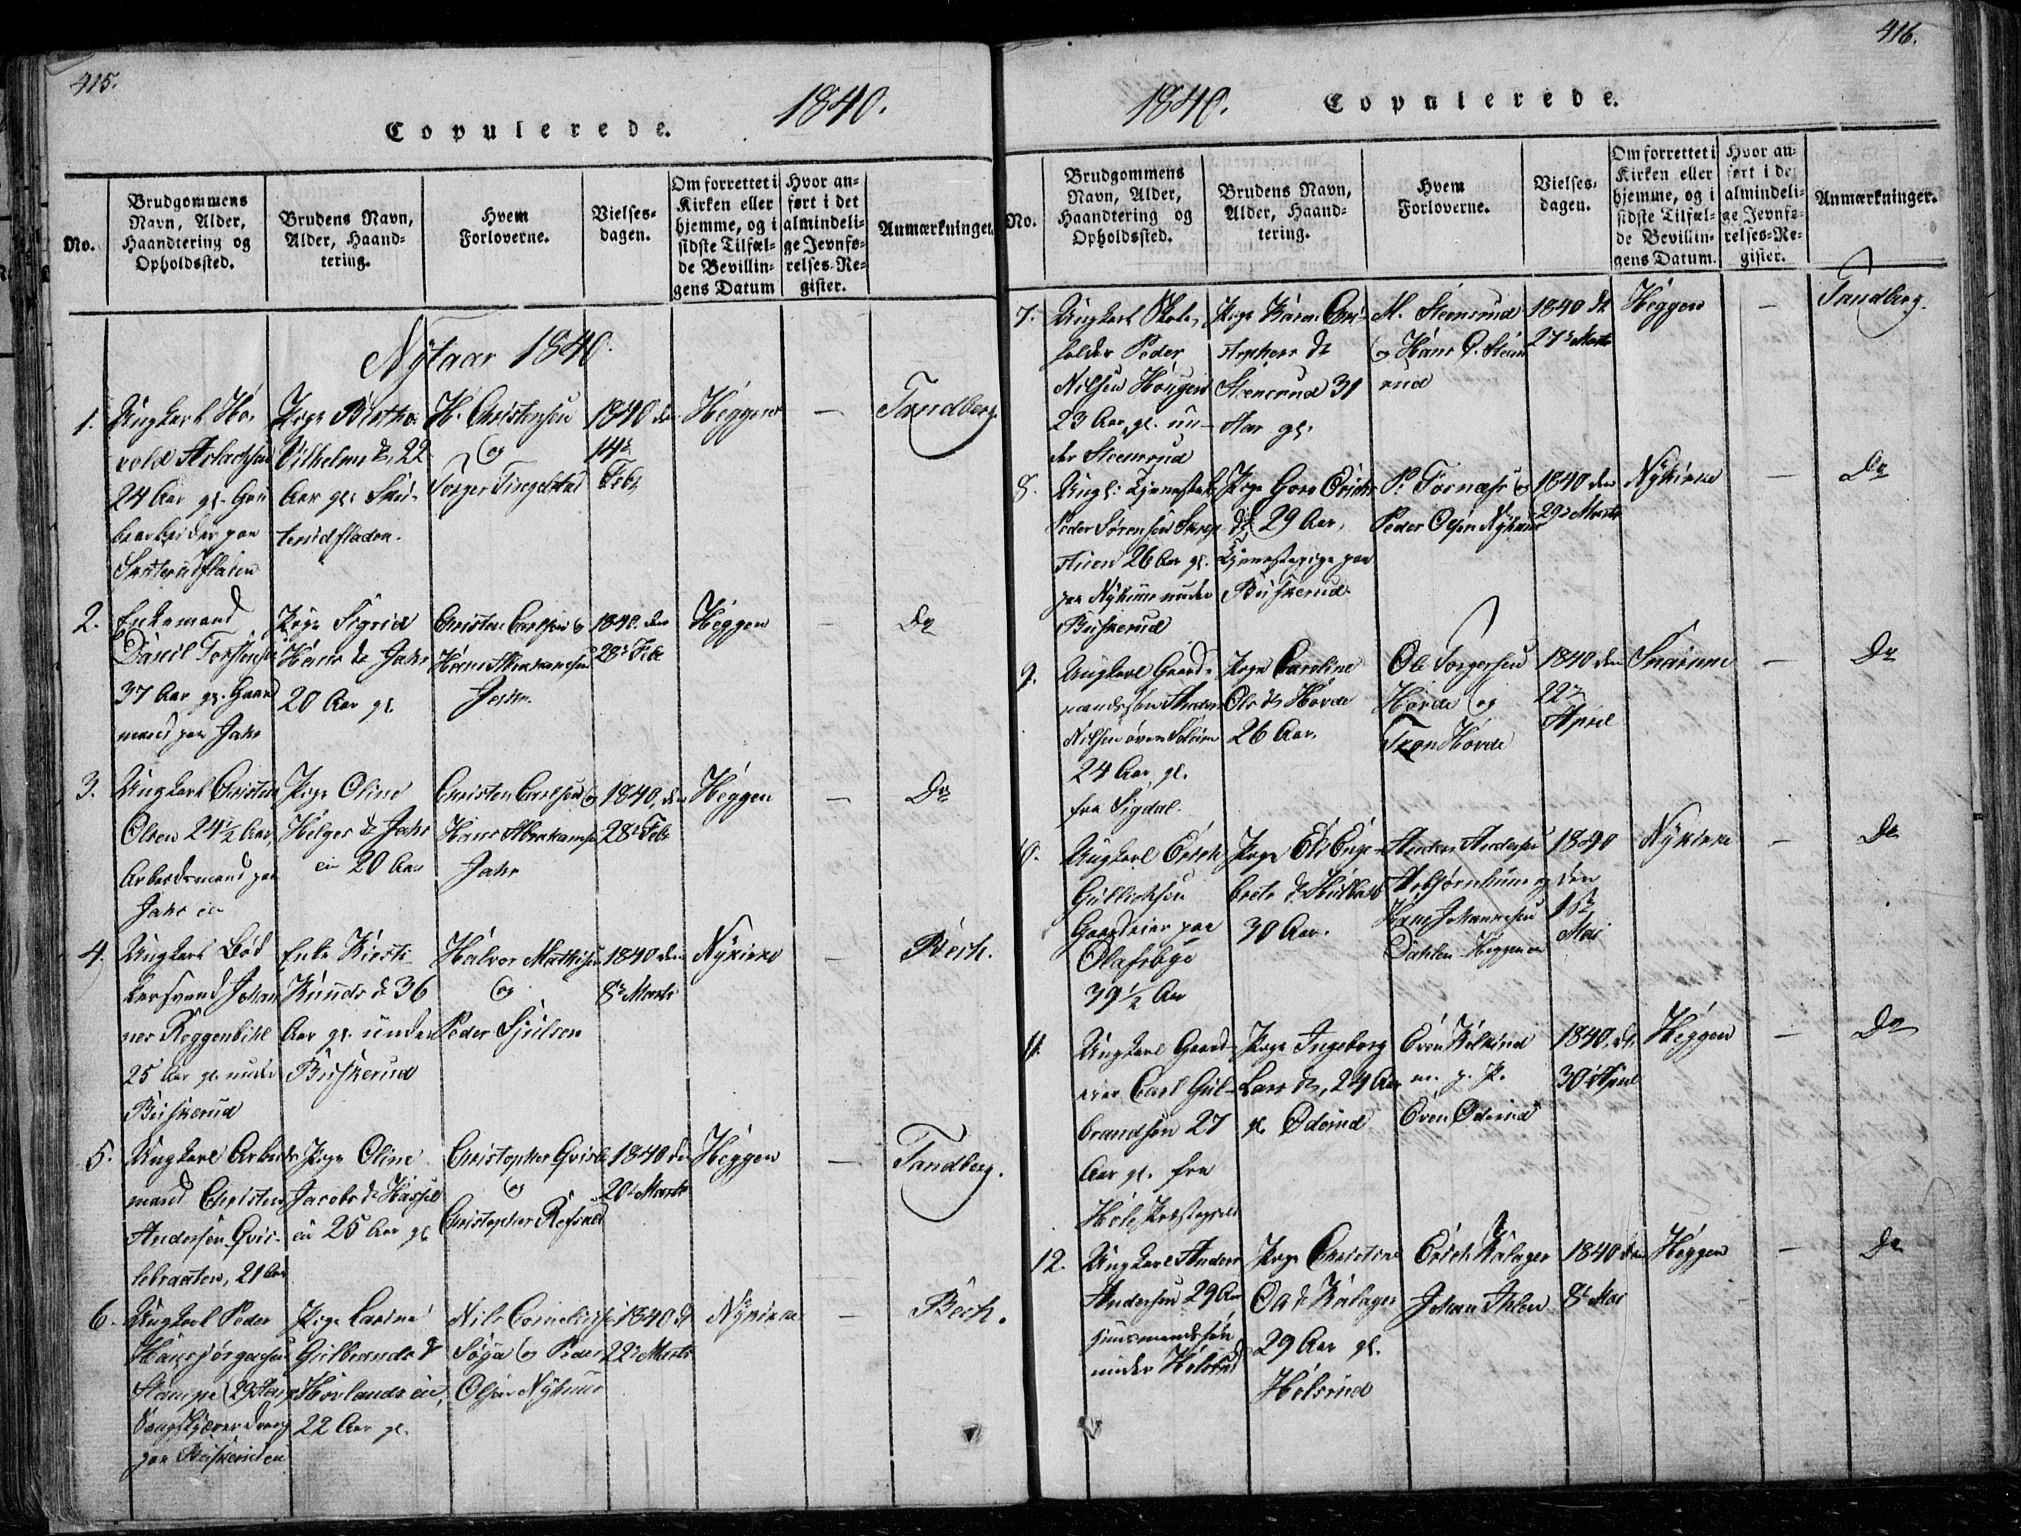 415.
1840.
Copulerede.
No.
Brudgommens
Navn, Alder,
Haandtering og
Opholdssted.
Brudens Navn,
Alder, Haand-
tering.
Hvem
Forloverne.
Vielses-
dagen.
Om forrettet i
Kirken eller
hjemme, og i
sidste Tilfæl-
de Bevillin-
gens Datum
Hvor an-
ført i det
almindeli-
ge Jevnfø-
relses-Re-
gister.
Anmærkninger.
Nytaar 1840.
1.
Ungkarl Ha-
vold Aslachsen
24 Aar gl.
paa
Pige
Vilhelms d., 22
Aar gl.
H. Christensen
og
Torger Tingelstad
1840 den
14de
Febr
Heggen
—
Tandberg.
2.
Enkemand
Daniel Torstensen
37 Aar gl. Gaard
mand paa Jahr
Pige Sigrid
Hans d. Jahr
20 Aar gl.
Christen Carlsen og
Hans Abrahamsen
1840. den
28de Febr
Heggen
—
Do
3.
Ungkarl Christen
Olsen 24 1/2 Aar,
Arbeidsmand paa
Jahr eie
Pige Oline
Helges d. Jahr
eie 20 Aar
Christen Carlsen og
Hans Abrahamsen
Jahr
1840, den
28de Febr
Heggen
—
Do
4.
Ungkarl Bød
kersvend Johan
nes Roggenbihl
25 Aar gl. under
Buskerud
Enke Kirsti
Knuds d. 36
Aar gl. under
Buskerud
Halvor Mathisen
og
Peder
1840 den
8de Marts
Nykirke
—
Bech.
5.
Ungkarl Arbeids
mand Christen
Andersen Qvis-
lebraaten, 21 Aar
Pige Oline
Jacobs d. Hassel
eie 25 Aar gl.
Christopher Qvisle
og
Christopher
1840 den
20de Marts
Heggen
—
Tandberg.
6.
Ungkarl Peder
Hans Jørgensen
Stampe 29 Aar gl.
paa Buskeruden
Pige Larine
Gulbrands d.
Hovlands eie,
22 Aar gl.
Nils Corneliusen
og Peder
Olsen Nyhuus
1840 d.
22de Marts
Nykirke
—
Bech.
416.
1840.
Copulerede.
No.
Brudgommens
Navn, Alder,
Haandtering og
Opholdssted.
Brudens Navn,
Alder, Haand-
tering.
Hvem
Forloverne.
Vielses-
dagen.
Om forrettet i
Kirken eller
hjemme, og i
sidste Tilfæl-
de Bevillin-
gens Datum.
Hvor an-
ført i det
almindeli-
ge Jevnfø-
relses-Re-
gister.
Anmærkninger.
7.
Ungkarl Skole-
holder Peder
Nilsen Haugen
23 Aar gl. un-
der Steensrud
Pige Karen Chri-
stophers d.
Steensrud 31
Aar gl.
M. Steensrud
og Hans O. Steens
rud
1840 d.
27de Marts
Heggen
—
Tandberg.
8.
Ungk: Tjenestek.
Peder Sørensen
26 Aar gl.
paa Nyhuus under
Buskerud
Pige Goro Erichs
d. 29 Aar,
Tjenestepige paa
Buskerud
P. Fornæss og
Peder Olsen Nyhuus
1840 den
29de Marts
Nykirke
—
Do
9.
Ungkarl Gaard-
mandssøn Anders
Nilsen øvre Solum
24 Aar gl.
fra Sigdal.
Pige Caroline
Ols d. Hovde
26 Aar.
Ole Torgersen
Hovde og
Tron Hovde
1840 den
22de
April
Snarum
—
Do
10.
Ungkarl Erich
Gulliksen
Gaardeier paa
Olafsbye
39 1/2 Aar
Pige Eli Enge-
brets d.
30 Aar.
Anders Andersen
og
Hans Johannesen
Dahlen Heggen eie
1840
den
1ste
Mai
Nykirke
—
Do
11.
Ungkarl Gaard-
eier Carl Gul-
brandsen 27
Aar gl. fra
Hole Præstegjeld
Pige Ingeborg
Lars d., 24 Aar
gl. Øderud
Even
m. p. P.
Even Øderud
1840, d.
30de April
Heggen
—
Do
12.
Ungkarl Anders
Andersen 29 Aar
Huusmandssøn
under Holsrud
Pige Christine
Ols d. Kalager
29 Aar gl.
Holsrud
Erich Kalager
Johan Ihlen
1840 den
8de Mai
Heggen
—
Do